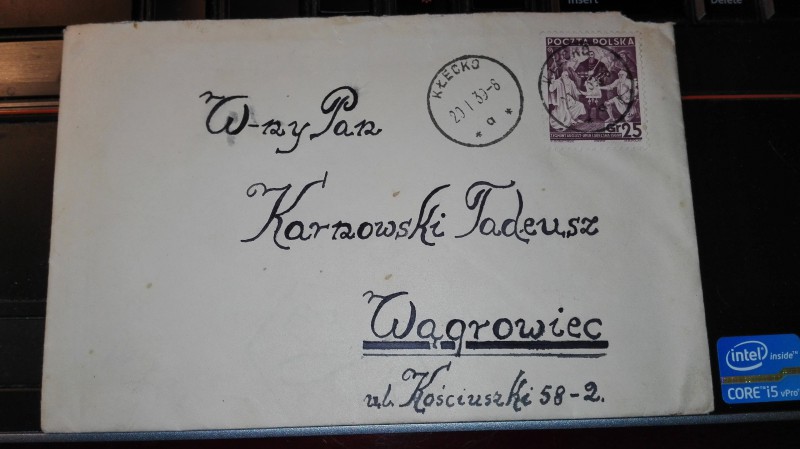 Insert
Delete
POCZTA POLSKA
KŁECKO
20 I 39-8
* a *
Gr 25
W-ny Pan
Karnowski Tadeusz
Wągrowiec
ul. Kościuszki 58-2.
intel inside™
CORE™ i5 vPro™